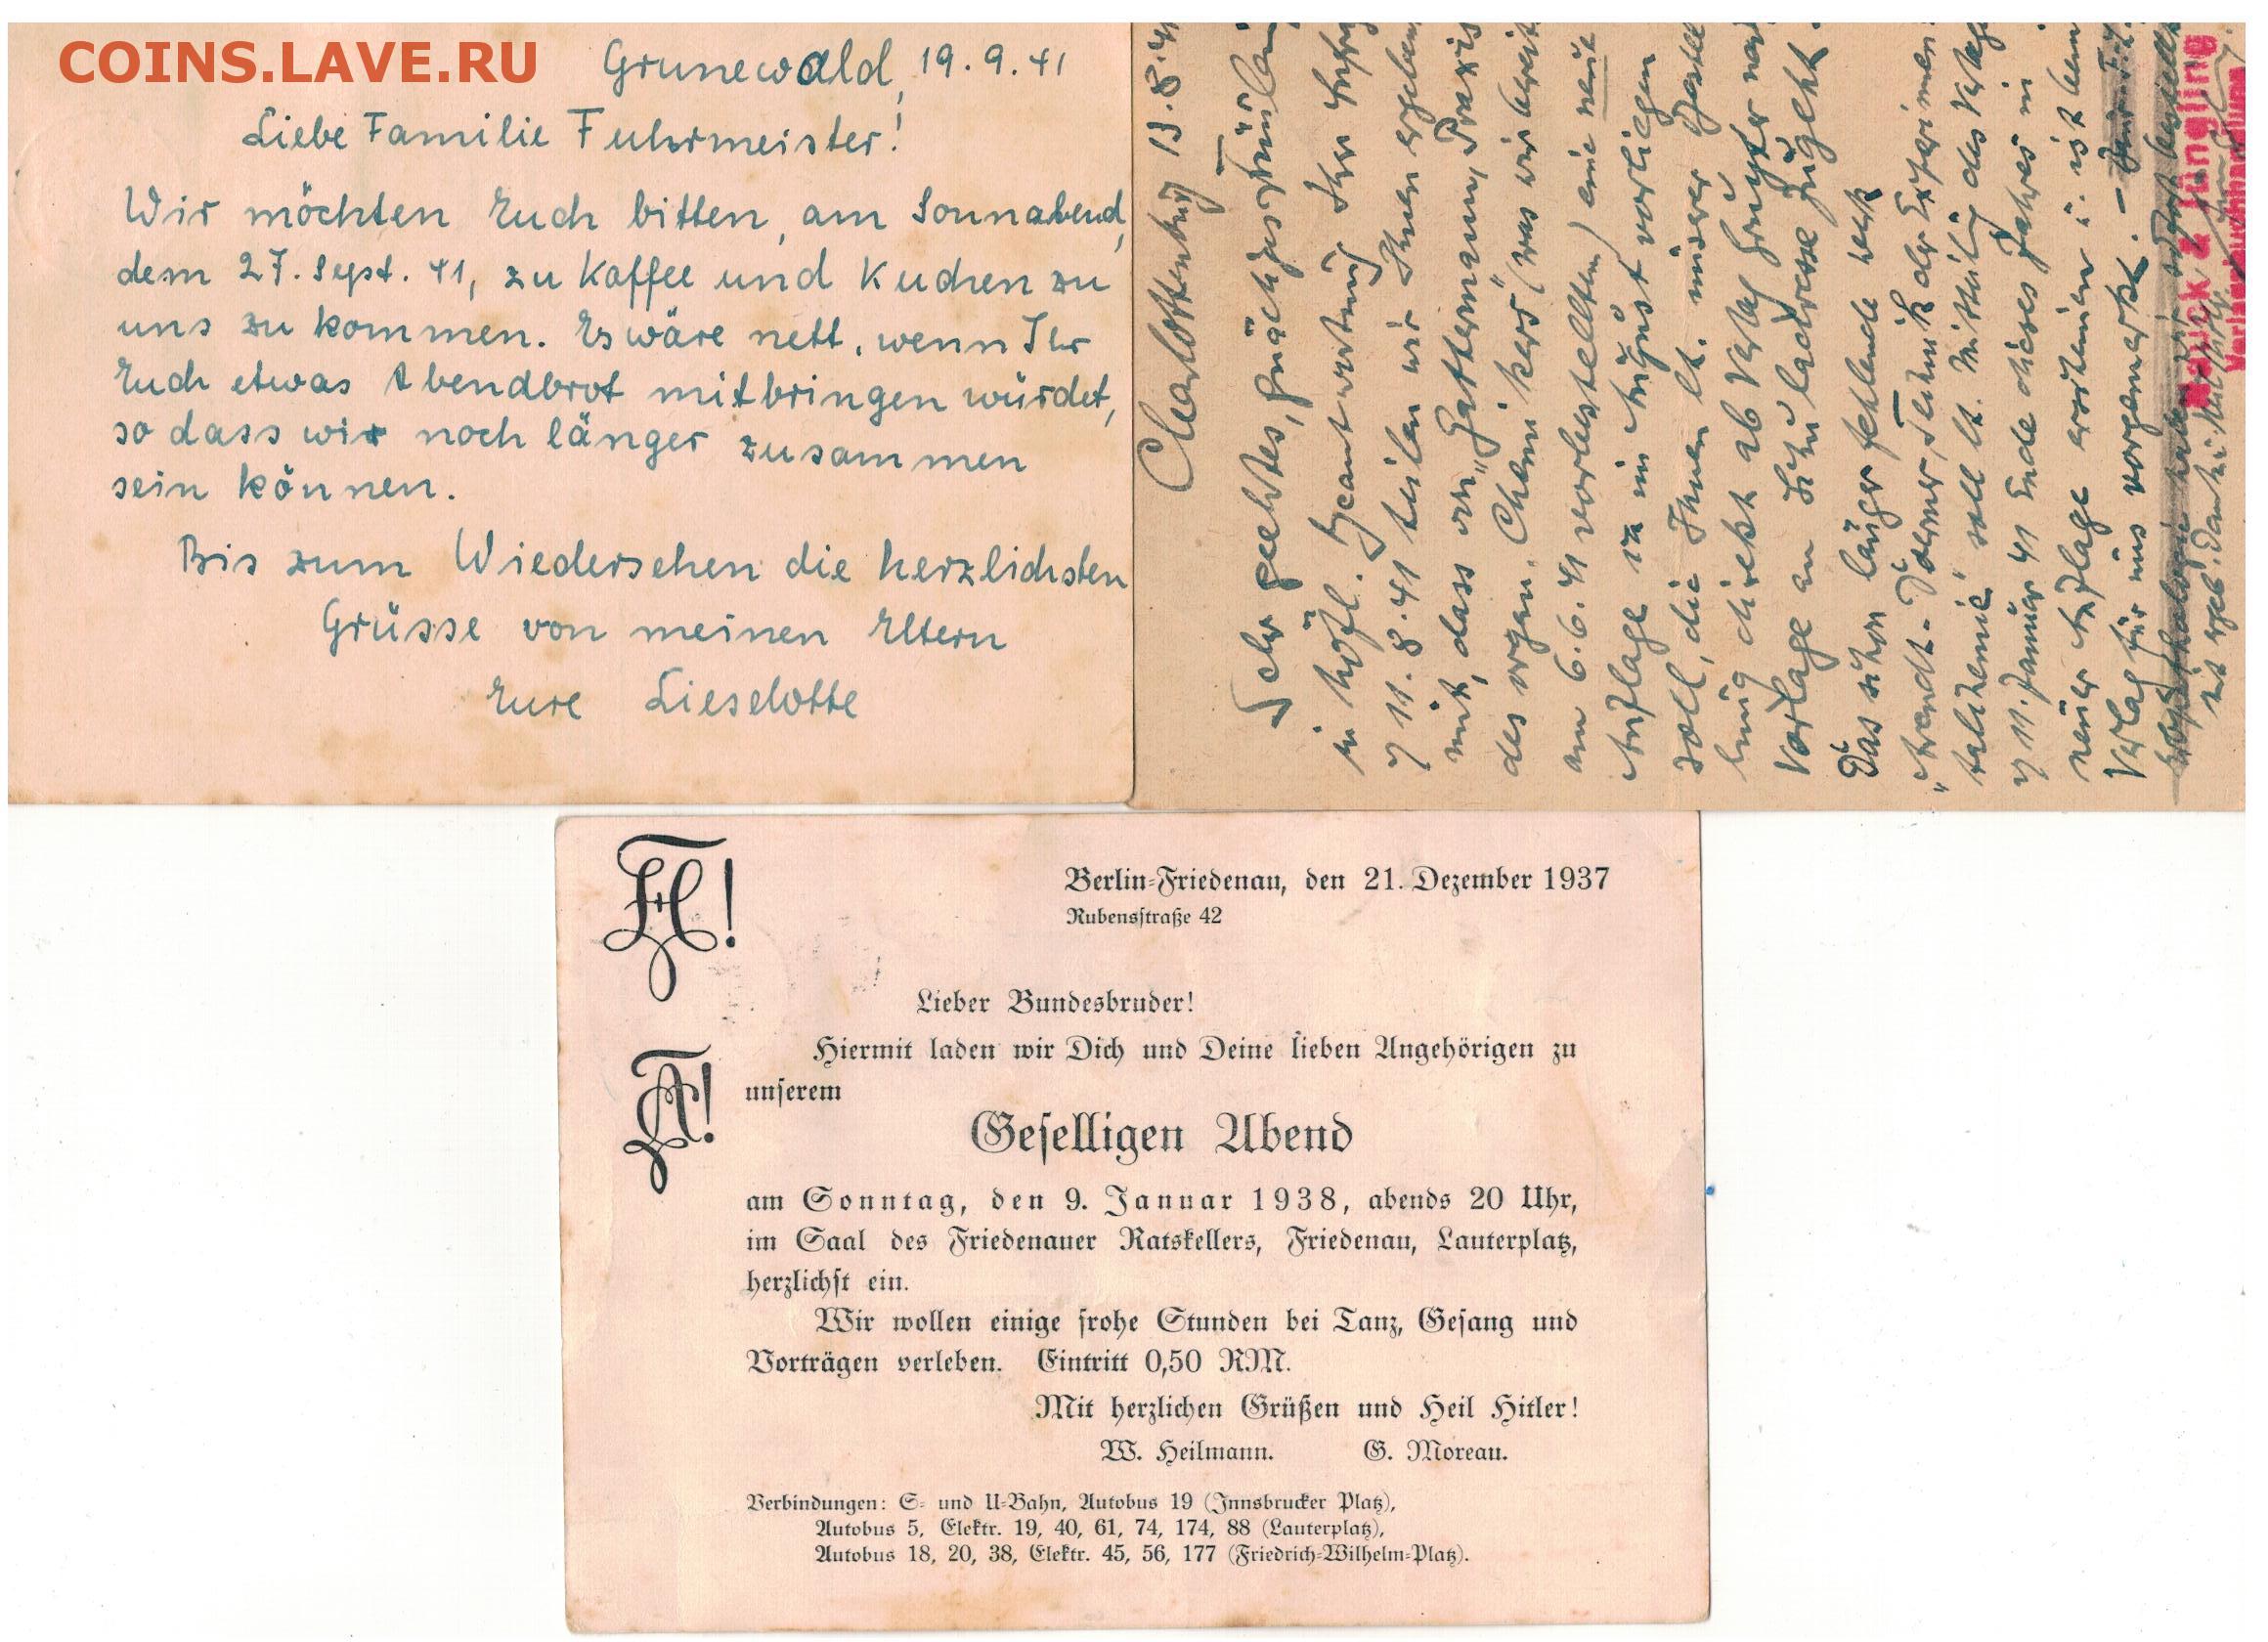 COINS.LAVE.RU
Grunewald, 19.9.41
Liebe Familie Fuhrmeister!
Wir möchten Euch bitten, am Sonnabend,
dem 27. Sept. 41, zu Kaffee und Kuchen zu
uns zu kommen. Es wäre nett, wenn Ihr
Euch etwas Abendbrot mitbringen würdet,
so dass wir noch länger zusammen
sein können.
Bis zum Wiedersehen die herzlichsten
Grüsse von meinen Eltern
Eure Lieselotte
Charlottenburg 13.8.41
Sehr geehrtes, gnädiges Fräulein
in höfl. Beantwortung Ihrer
11.8.41 teilen wir Ihnen ergeben
mit, dass von „Gattermann, Praxis
des organ. Chemikers" (was wir bereits
am 6.6.41 vorbestellten) eine neue
Auflage im August vorliegen
soll, die Ihnen lt. unserer Bestel
lung direkt ab Verlag Gruyter nach
Vorlage an zugeht.
Das schon länger fehlende Werk
soll lt. Mitteilung des Verlages
11. Januar 41 Ende dieses Jahres in
neuer Auflage erscheinen u. ist beim
Verlag für uns vorgemerkt. –
H!
Berlin-Friedenau, den 21. Dezember 1937
Rubensstraße 42
Lieber Bundesbruder!
Hiermit laden wir Dich und Deine lieben Angehörigen zu
unserem
A!
Geselligen Abend
am Sonntag, den 9. Januar 1938, abends 20 Uhr,
im Saal des Friedenauer Ratskellers, Friedenau, Lauterplatz,
herzlichst ein.
Wir wollen einige frohe Stunden bei Tanz, Gesang und
Vorträgen verleben. Eintritt 0,50 RM.
Mit herzlichen Grüßen und Heil Hitler!
W. Heilmann. G. Moreau.
Verbindungen: S- und U-Bahn, Autobus 19 (Innsbrucker Platz),
Autobus 5, Elektr. 19, 40, 61, 74, 174, 88 (Lauterplatz),
Autobus 18, 20, 38, Elektr. 45, 56, 177 (Friedrich-Wilhelm-Platz).